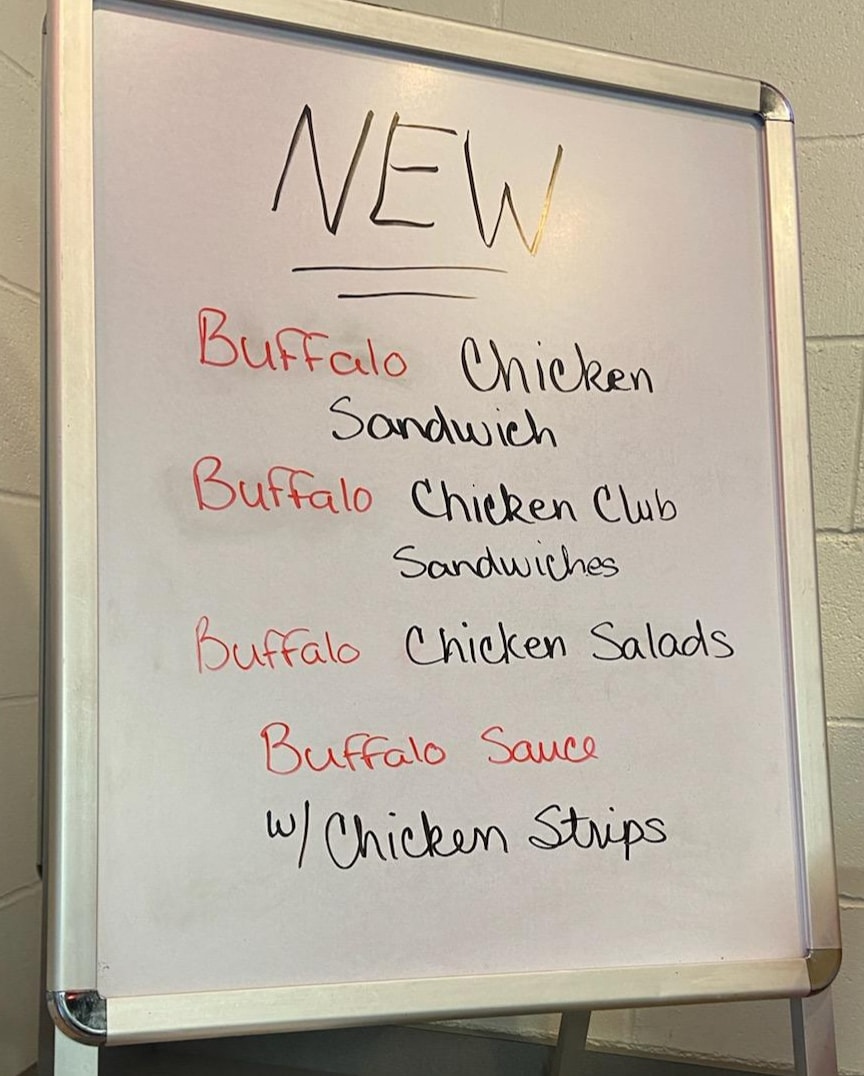 NEW
Buffalo Chicken
Sandwich
Buffalo Chicken Club
Sandwiches
Buffalo Chicken Salads
Buffalo Sauce
w/ Chicken Strips